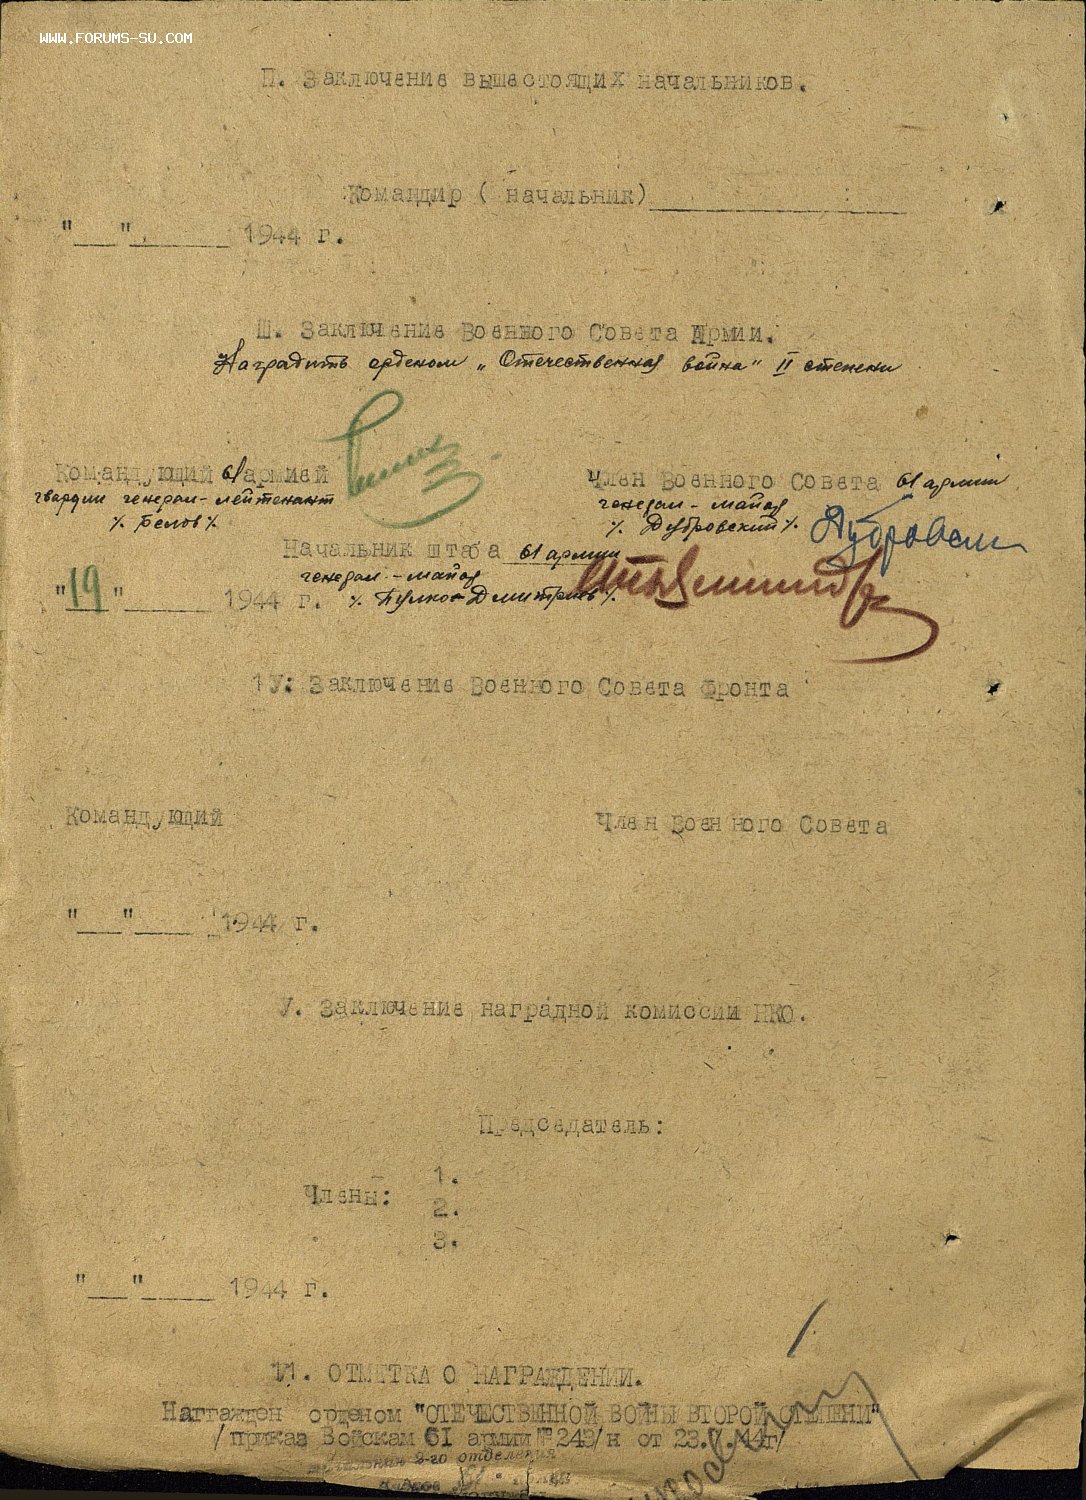 WWW.FORUMS-SU.COM
П. Заключение вышестоящих начальников.
Командир ( начальник)____________
"___"_______ 1944 г.
Ш. Заключение Военного Совета Армии.
Наградить орденом „Отечественная война" II степени
Командующий 61 армией
гвардии генерал-лейтенант
/. Белов /.
Член Военного Совета 61 армии
генерал-майор
/. Дубровский /.
Начальник штаба 61 армии
генерал-майор
"19"______ 1944 г. /. Пулко-Дмитриев /.
1У: Заключение Военного Совета фронта
Командующий
Член Военного Совета
"___"____ 1944 г.
У. Заключение наградной комиссии НКО.
Председатель:
Члены:
1.
2.
3.
"___"_____ 1944 г.
У1. ОТМЕТКА О НАГРАЖДЕНИИ.
Награжден орденом "ОТЕЧЕСТВЕННОЙ ВОЙНЫ ВТОРОЙ СТЕПЕНИ"
/приказ Войскам 61 армии № 249/н от 23.7.44г/
2-го отделения